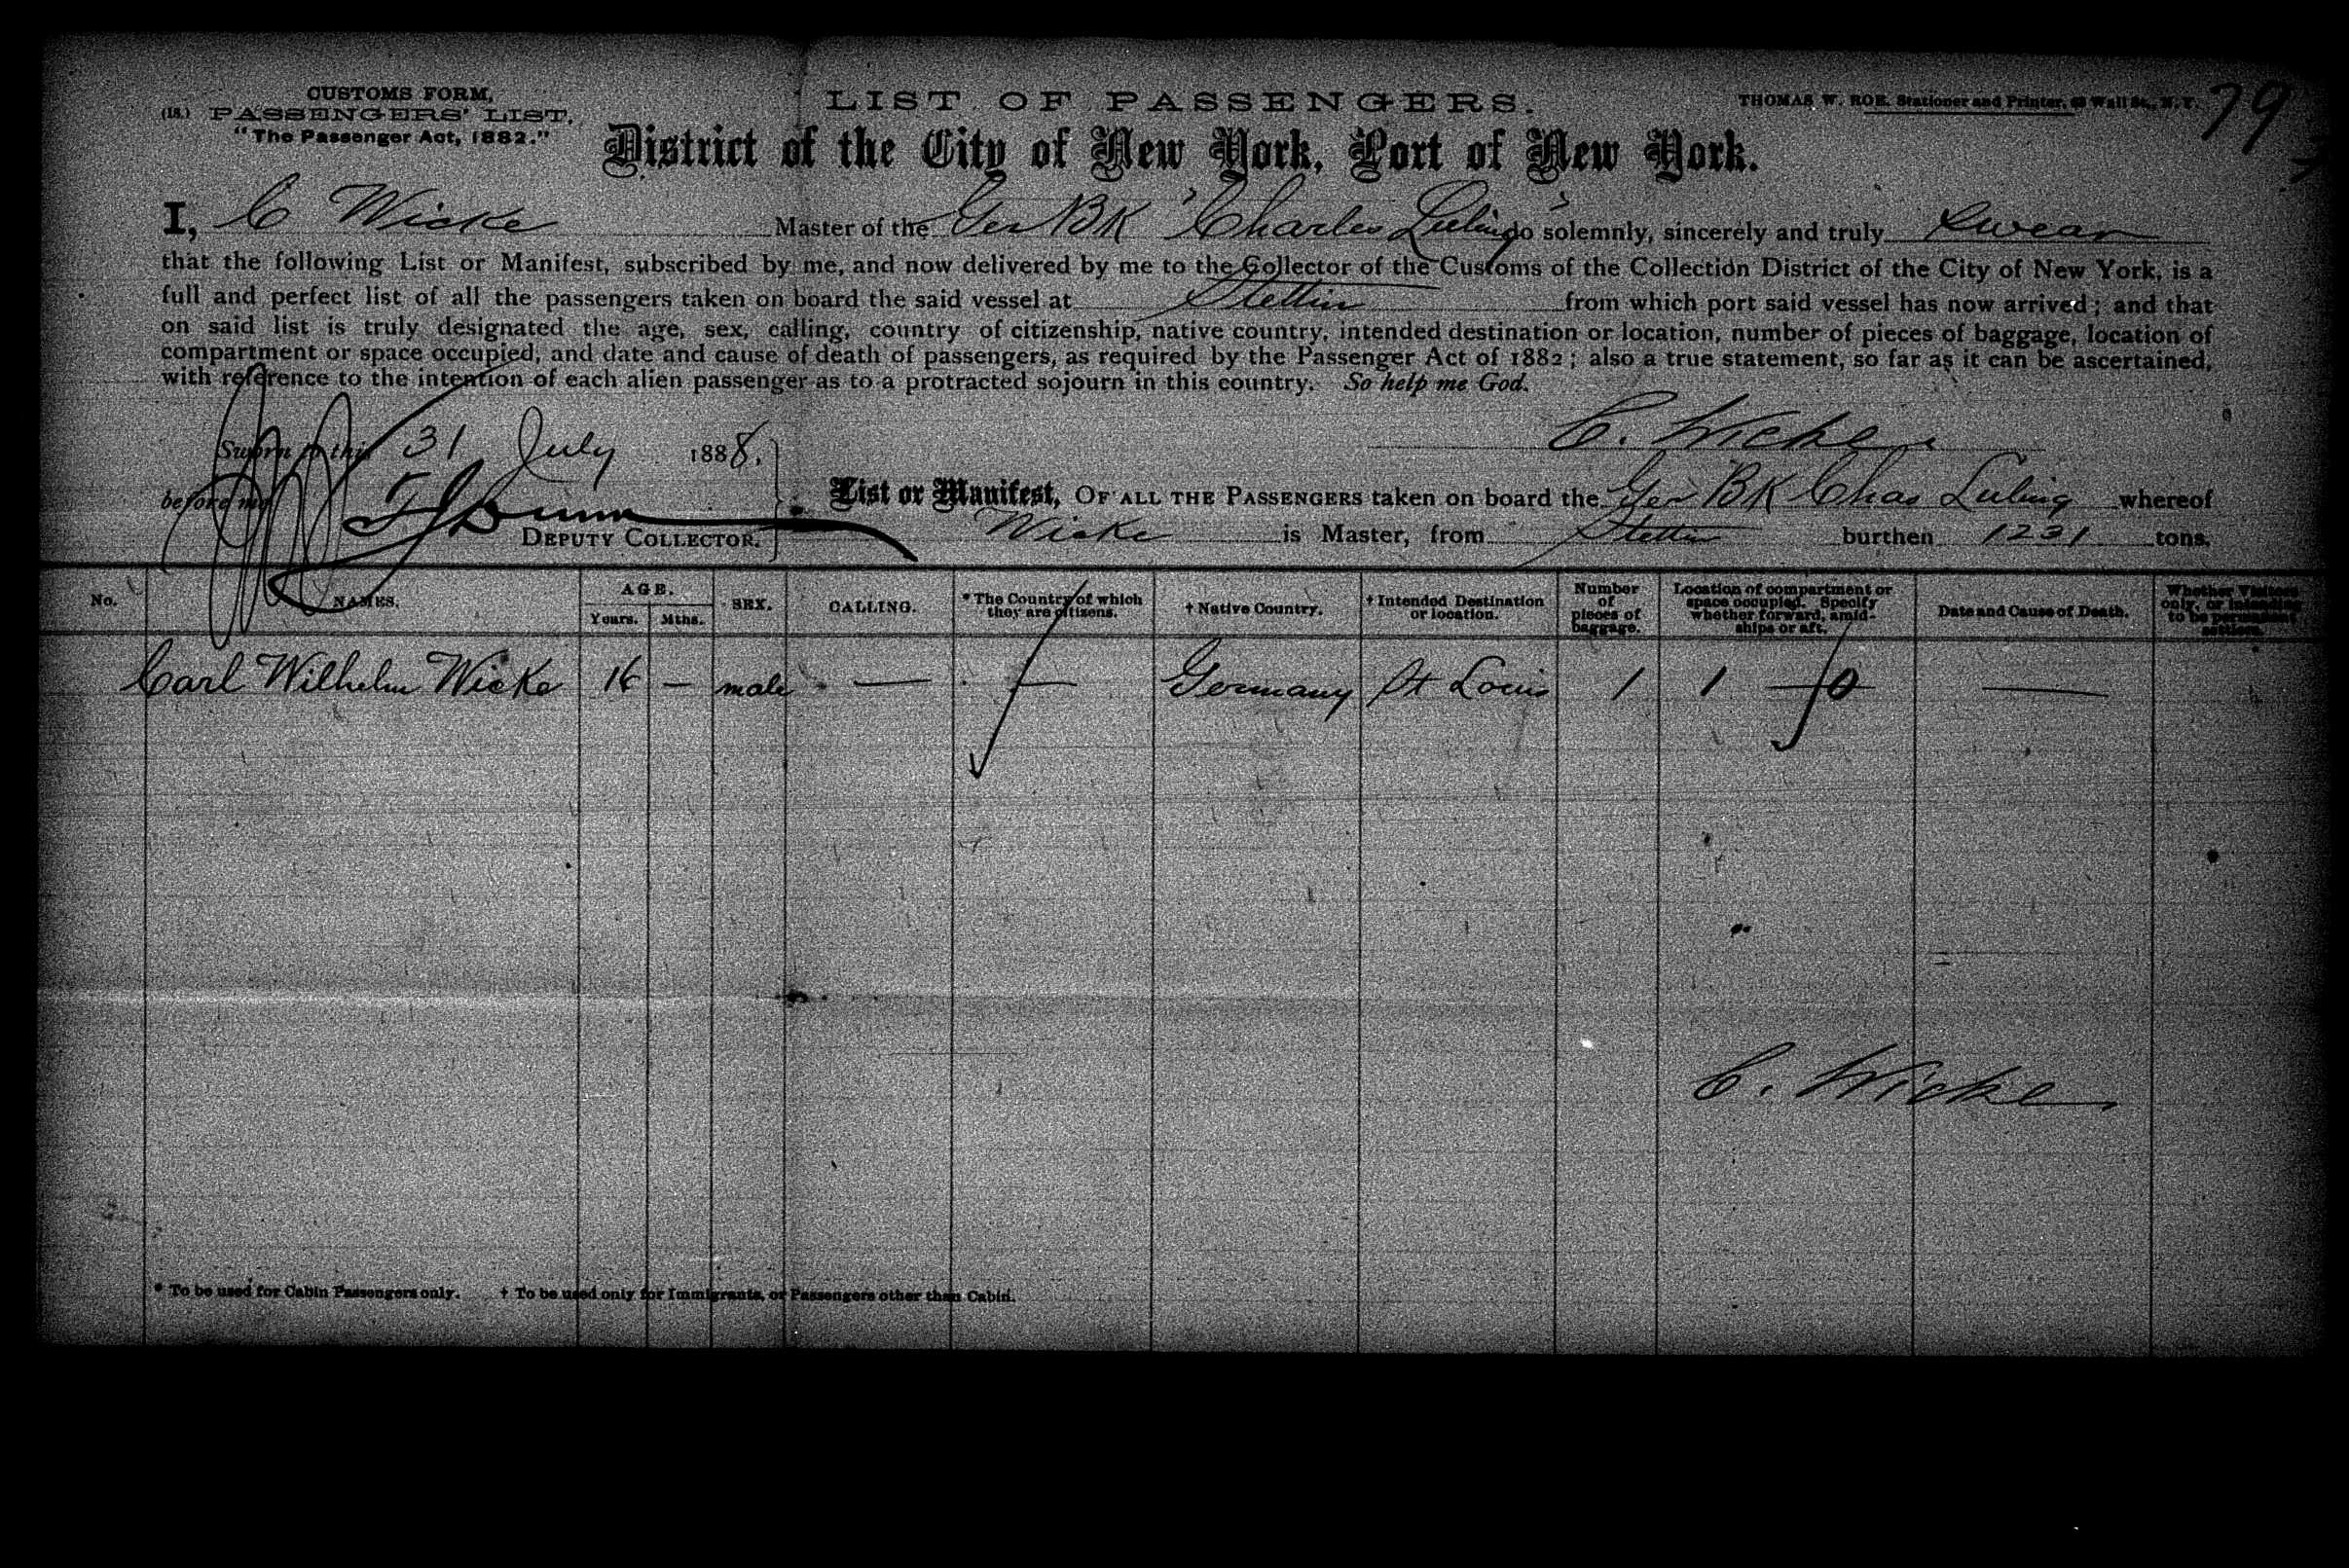 CUSTOMS FORM,
(18.) PASSENGERS' LIST,
"The Passenger Act, 1882."
LIST OF PASSENGERS.
THOMAS W. ROE, Stationer and Printer, Wall St., N. Y.
79
District of the City of New York, Port of New York.
I, C Wicke Master of the Ger BK "Charles Luling" do solemnly, sincerely and truly Swear
that the following List or Manifest, subscribed by me, and now delivered by me to the Collector of the Customs of the Collection District of the City of New York, is a
full and perfect list of all the passengers taken on board the said vessel at Stettin from which port said vessel has now arrived; and that
on said list is truly designated the age, sex, calling, country of citizenship, native country, intended destination or location, number of pieces of baggage, location of
compartment or space occupied, and date and cause of death of passengers, as required by the Passenger Act of 1882; also a true statement, so far as it can be ascertained,
with reference to the intention of each alien passenger as to a protracted sojourn in this country. So help me God.
Sworn to this 31 July 1888,
C. Wicke
before me
DEPUTY COLLECTOR.
List or Manifest, OF ALL THE PASSENGERS taken on board the Ger BK Chas Luling whereof
Wicke is Master, from Stettin burthen 1231 tons.
No. NAMES. AGE. Years. Mths. SEX. CALLING. * The Country of which they are citizens. † Native Country. † Intended Destination or location. Number of pieces of baggage. Location of compartment or space occupied. Specify whether forward, amidships or aft. Date and Cause of Death. Whether Visitors only, or intending to be permanent settlers.
Carl Wilhelm Wicke 16 — male — — Germany St Louis 1 1 — 0 —
C. Wicke
* To be used for Cabin Passengers only. † To be used only for Immigrants, or Passengers other than Cabin.